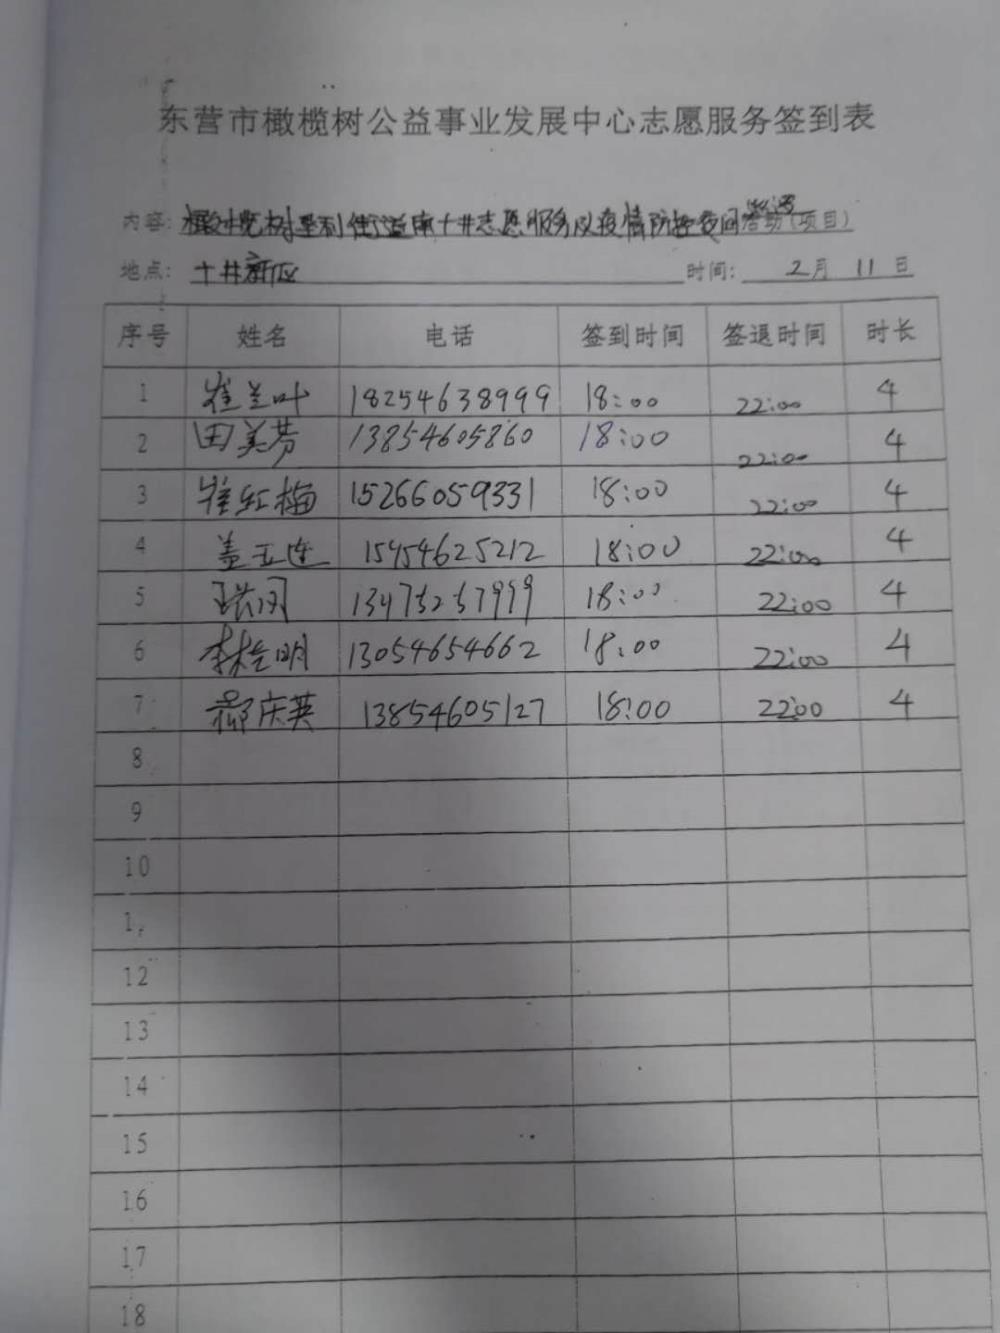 东营市橄榄树公益事业发展中心志愿服务签到表
内容: 橄榄树垦利街道南十井志愿服务队疫情防控夜间巡逻活动(项目)
地点: 十井新区 时间: 2月 11 日
序号 姓名 电话 签到时间 签退时间 时长
1 崔兰叶 18254638999 18:00 22:00 4
2 田美芳 13854605860 18:00 22:00 4
3 崔红梅 15266059331 18:00 22:00 4
4 盖玉连 15454625212 18:00 22:00 4
5 13475257999 18:00 22:00 4
6 李桂明 13054654662 18:00 22:00 4
7 郝庆英 13854605127 18:00 22:00 4
8
9
10
1
12
13
14
15
16
17
18